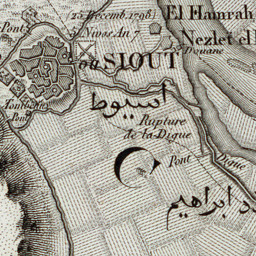 Pont
25 Decemb. 1798
5 Nivose An 7
El Hamrah
Douane
Nezlet el
ou SIOUT
أسيوط
Tombeaux
Pont
Rupture
de la Digue
Pont
Digue
ابراهيم